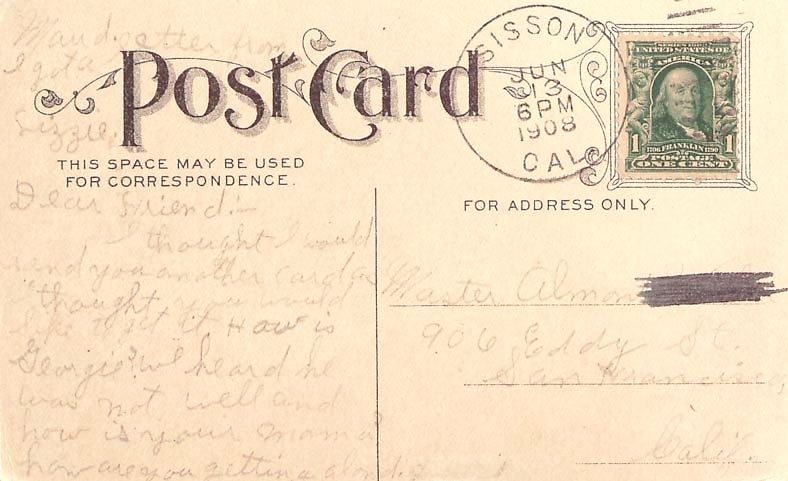 Maud letter from
I got a
Lizzie.
Post Card
SISSON
JUN
13
6 PM
1908
CAL
SERIES 1902
UNITED STATES OF
AMERICA
1 1790 FRANKLIN 1
POSTAGE
ONE CENT
THIS SPACE MAY BE USED
FOR CORRESPONDENCE.
FOR ADDRESS ONLY.
Dear Friend:—
I thought I would
send you another card as
I thought you would
like to get it How is
Georgie? we heard he
was not well and
how is your mama?
how are you getting along.
Master Almon
906 Eddy St.
San Francisco,
Calif.